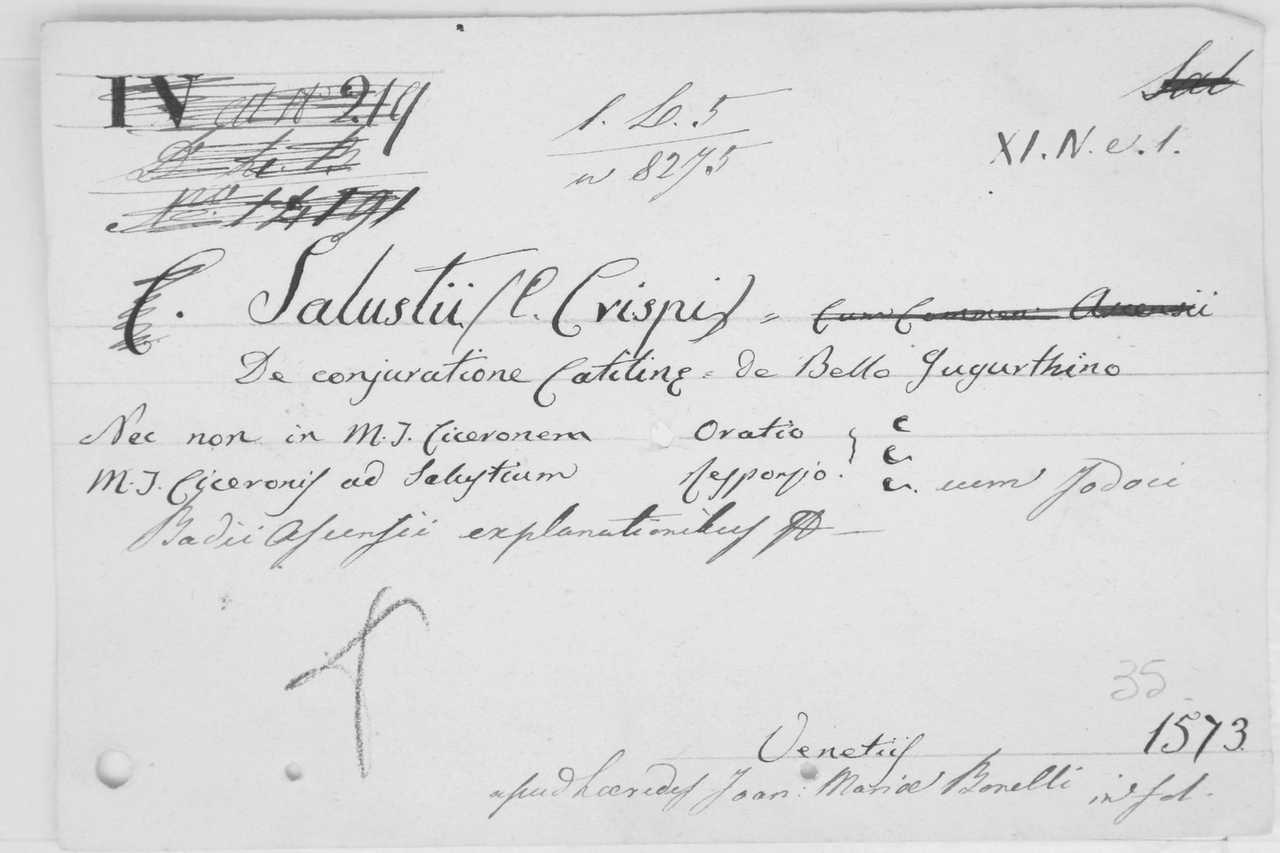 IV 219
1. L. 5
n 8275
XI. N. e. 1.
Sal
No. 14191
C. Salustii (C. Crispi) = Cum Commen. Ascensii
De conjuratione Catilinę = de Bello Jugurthino
Nec non in M. T. Ciceronem Oratio
M. T. Ciceronis ad Salustium Responsio. cum Jodoci
Badii Asensii explanationibus
35
Venetiis 1573
apud hœredes Joan: Mariæ Bonelli in fol.